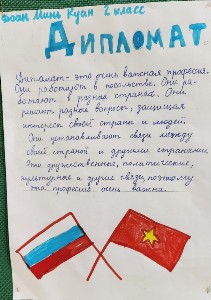 Фоан Минь Куан 2 класс
Дипломат
Дипломат - это очень важная професия.
Они работают в посольстве. Они ра-
ботают в разных странах. Они
решают разные вопросы, защищая
интересы своей страны и людей
Они устанавливают связи между
своей страной и другими странами.
Это дружественные, политические,
культурные и другие связи, поэтому
эта професия очень важна.